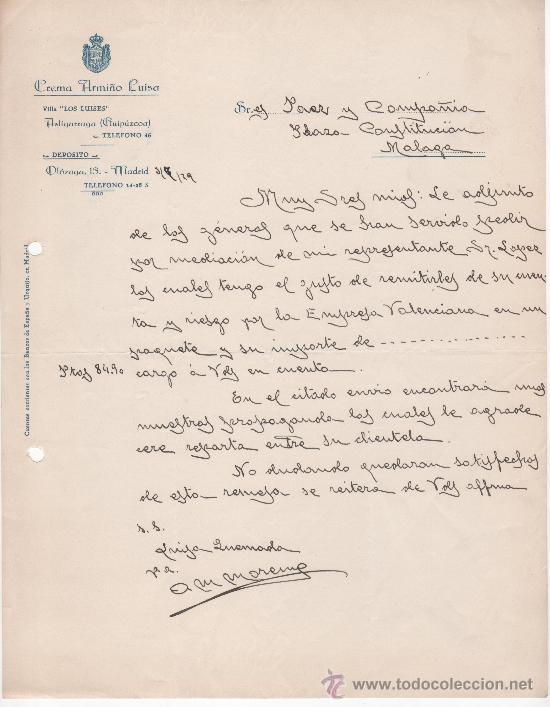 Crema Armiño Luisa
Villa "LOS LUISES"
Astigarraga (Guipúzcoa)
TELEFONO 46
DEPOSITO
Olózaga, 13. - Madrid
TELEFONO
/29
Sres Paez y Compañia
Plaza Constitución
Malaga
Muy Sres mios: Le adjunto
de los géneros que se han servido pedir
por mediación de mi representante Sr. Lopez
los cuales tengo el gusto de remitirles de su cuen
ta y riesgo por la Empresa Valenciana en un
paquete y su importe de - - - - - - - - - - - - - -
Ptas 84.90 cargo á Vds en cuenta.
En el citado envio encontrará unas
muestras propaganda las cuales le agrade
cere reparta entre su clientela.
No dudando quedaran satisfechos
de esta remesa se reitera de Vds affma
s. s.
Luisa Quemada
p. a.
A M Moreno
Cuentas corrientes: con los Bancos de España y Urquijo, en Madrid
todocoleccion
www.todocoleccion.net